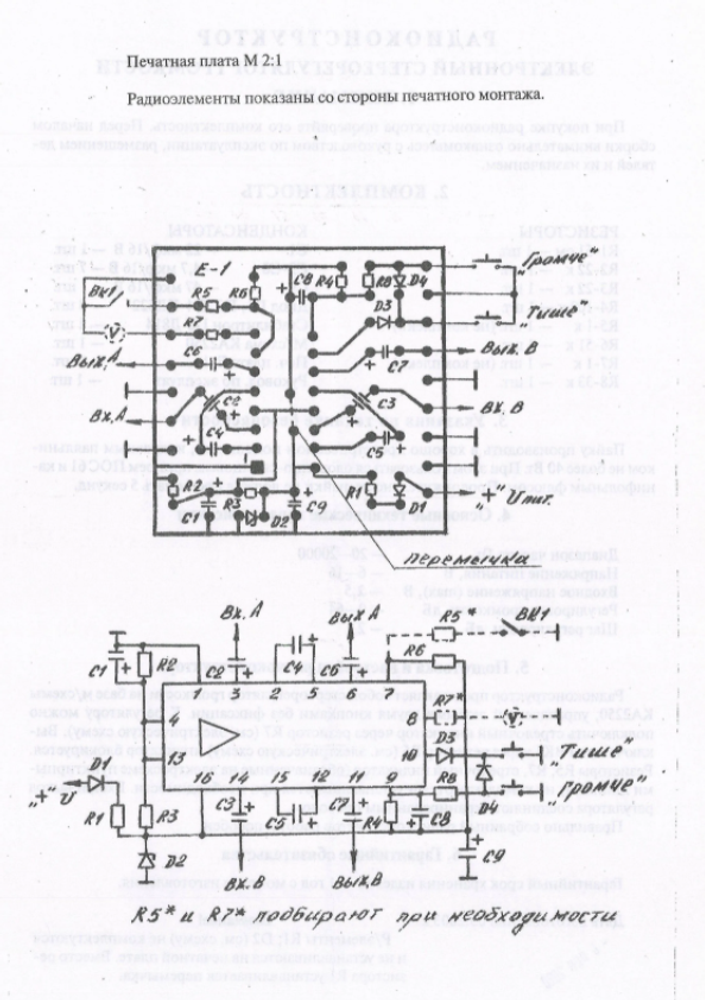 Печатная плата М 2:1
Радиоэлементы показаны со стороны печатного монтажа.
E-1
C8 R4 R8 D4
"Громче"
ВК1
R5 R6
D3
"Тише"
V
R7
ВЫХ. А
C6
C7
ВЫХ. В
C2
C3
ВХ. А
ВХ. В
C4
C5
R2
R3
R1
"+" Uпит.
C1
D2
C9
D1
перемычка
ВХ. А
ВЫХ А
R5*
ВК1
C1
R2
C2
C4
C6
R6
1 3 2 5 6 7
R7*
4
8
V
D3
13
10
"Тише"
D1
16 14 15 12 11
9
R8
"Громче"
"+" U
D4
R1
R3
C3
C5
C7
R4
C8
D2
C9
ВХ. В
ВЫХ. В
R5* и R7* подбирают при необходимости